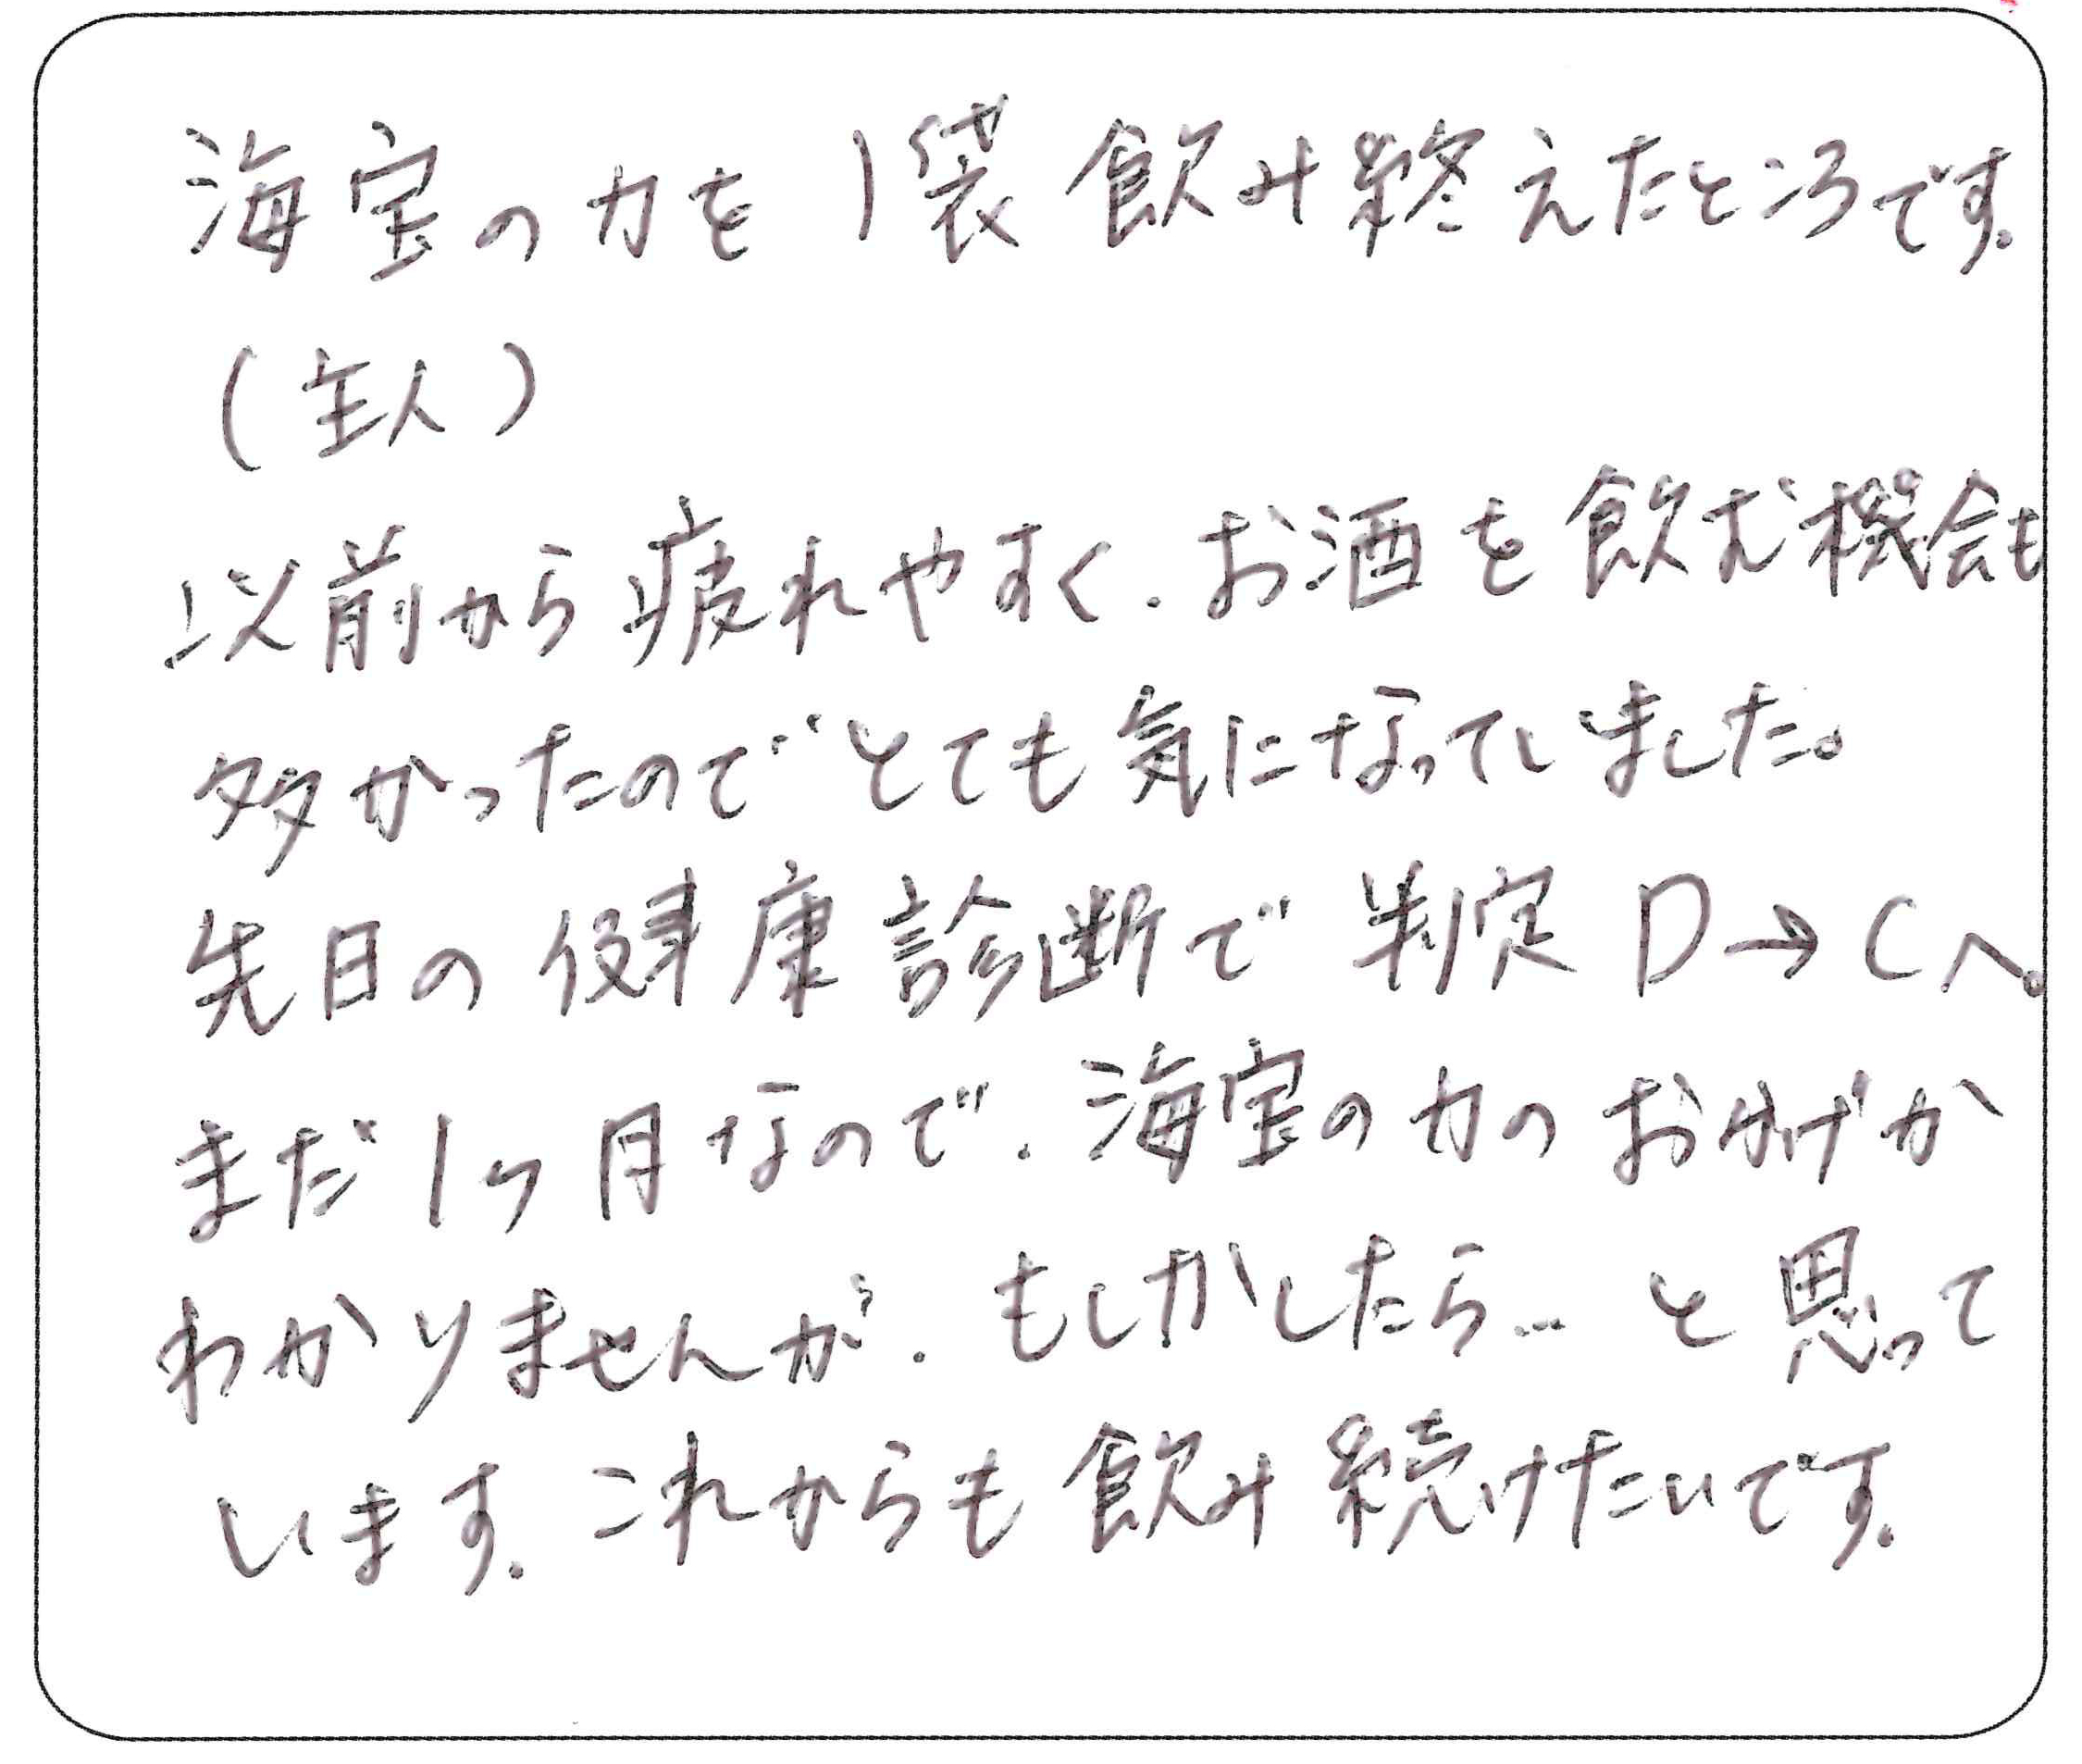 海宝の力を1袋飲み終えたところです。
（主人）
以前から疲れやすく、お酒を飲む機会も
多かったのでとても気になっていました。
先日の健康診断で判定D→Cへ。
まだ1ヶ月なので、海宝の力のおかげか
わかりませんが、もしかしたら…と思って
います。これからも飲み続けたいです。